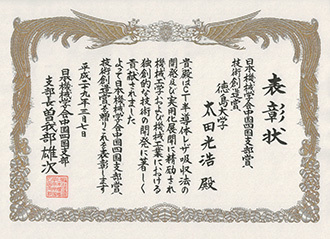 表彰状
日本機械学会中国四国支部賞
技術創造賞
徳島大学
太田光浩 殿
貴殿はCT半導体レーザ吸収法の
開発及び実用化展開に精励され
機械工学および機械工業における
独創的な技術の開発に著しく
貢献されました
よって日本機械学会中国四国支部賞
技術創造賞を贈りこれを表彰します
平成二十九年三月七日
日本機械学会中国四国支部
支部長 曽我部雄次